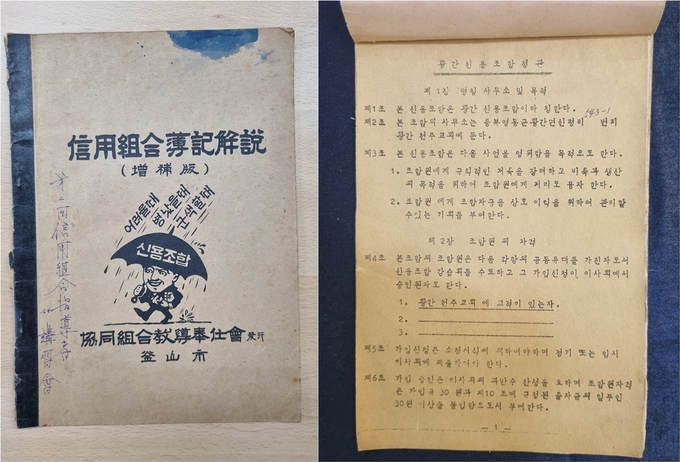 信用組合簿記解説
(增補版)
어려울때
병났을때
군색할때
신용조합
協同組合敎導奉仕會 発行
釜山市
信用組合指導者
講習會
황간신용조합정관
제1장 명칭 사무소 및 목적
제1조 본 신용조합은 황간 신용조합이라 칭한다.
제2조 본 조합의 사무소는 충북영동군황간면신흥리 번지
143-1
황간 천주교회에 둔다.
제3조 본 신용조합은 다음 사업을 영위함을 목적으로 한다.
1. 조합원에게 규칙적인 저축을 장려하고 비축과 생산
의 목적을 위하여 조합원에게 저리로 융자 한다.
2. 조합원 에게 조합자금을 상호 이익을 위하여 관리할
수있는 기회를 부여한다.
제2장 조합원 의 자격
제4조 본조합의 조합원은 다음 각항의 공동유대를 가진자로서
신용조합 강습회를 수료하고 그 가입신청이 이사회에서
승인된자로 한다.
1. 황간 천주교회 에 그적이 있는자.
2.
3.
제5조 가입신청은 소정서식에 의하여야하며 정기 또는 임시
이사회에 제출하여야 한다.
제6조 가입 승인은 이사회의 과반수 찬성을 요하며 조합원자격
은 가입금 30원과 제10조에 규정된 출자금의 일부인
30원 이상을 불입함으로서 부여한다.
— 1 —